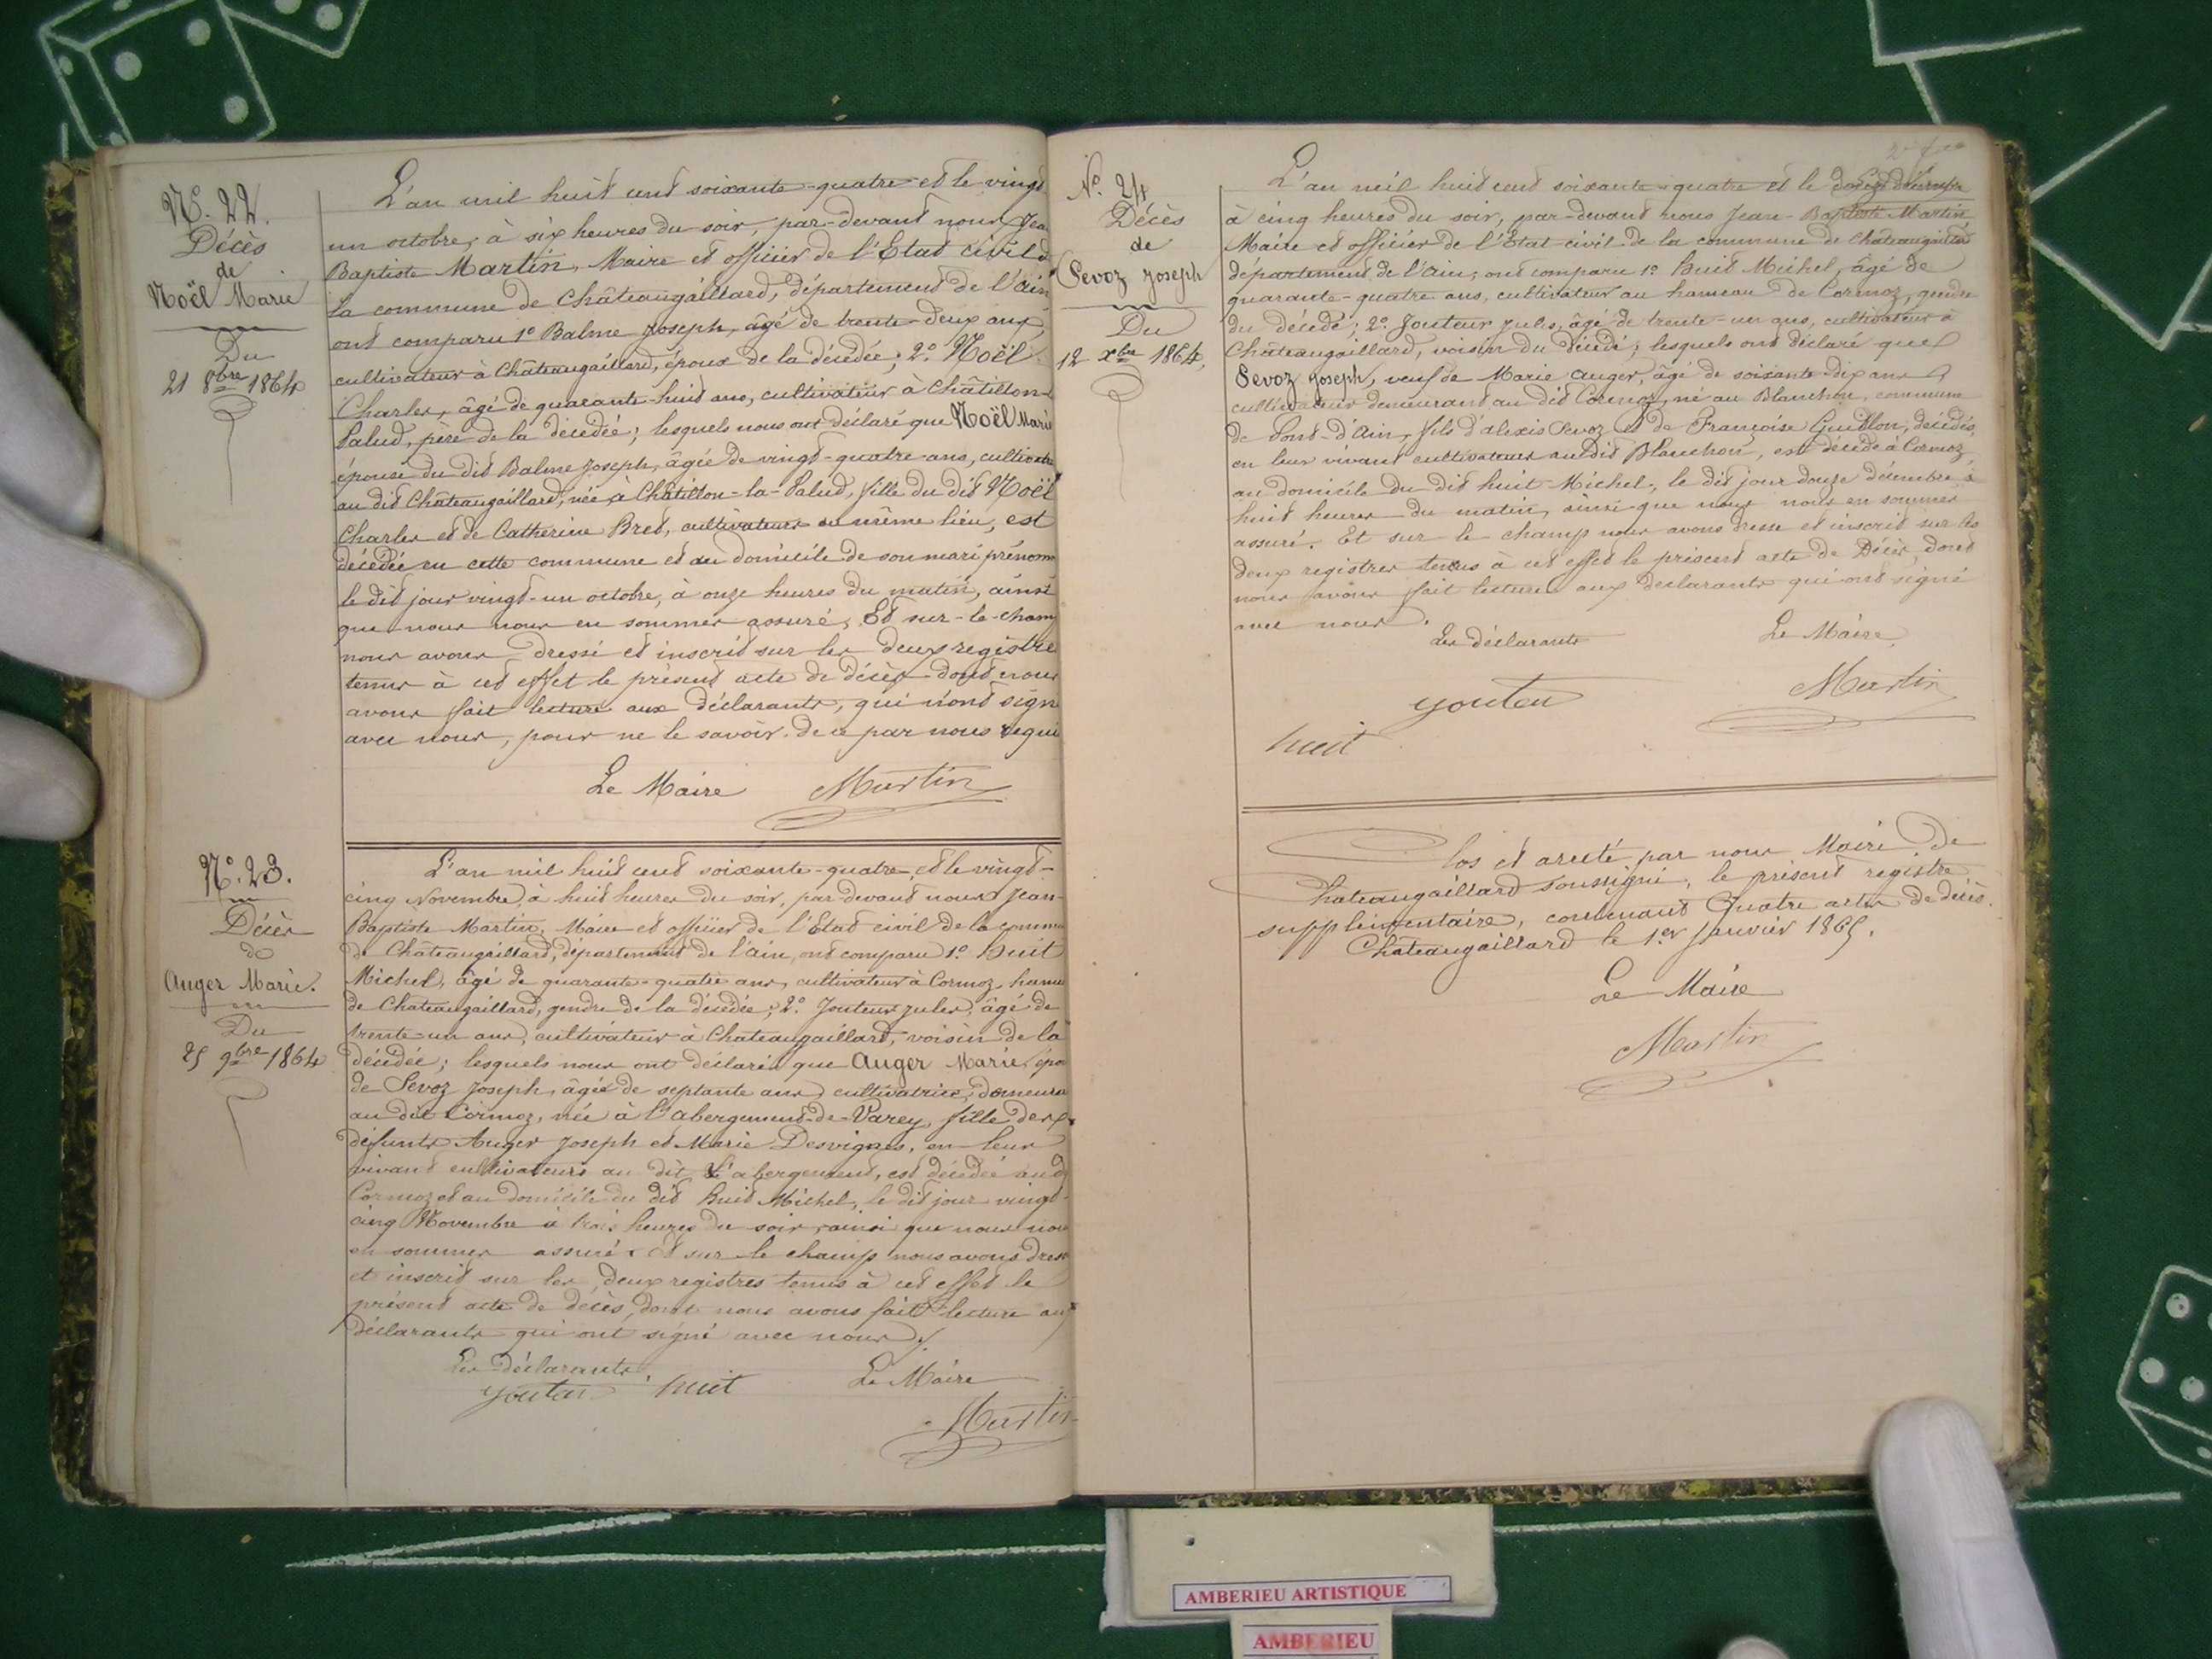 Nº. 22.
Décès
de
Noël Marie
Du
21 8bre 1864
L'an mil huit cent soixante-quatre et le vingt
un octobre, à six heures du soir, par-devant nous Jea
Baptiste Martin, Maire et officier de l'Etat civil d
la commune de Châteaugaillard, département de l'ain
ont comparu 1º Balme Joseph, âgé de trente-deux ans,
cultivateur à Châteaugaillard, époux de la décédée; 2º Noël
Charles, âgé de quarante-huit ans, cultivateur à Châtillon-
Palud, père de la décédée; lesquels nous ont déclaré que Noël Marie
épouse du dit Balme Joseph, âgée de vingt-quatre ans, cultivatr
au dit Châteaugaillard, née à Châtillon-la-Palud, fille du dit Noël
Charles et de Catherine Bred, cultivateurs au même lieu, est
décédée en cette commune et au domicile de son mari prénom
le dit jour vingt-un octobre, à onze heures du matin, ainsi
que nous nous en sommes assuré, Et sur-le-cham
nous avons dressé et inscrit sur les deux registre
tenus à cet effet le présent acte de décès dont nous
avons fait lecture aux déclarants, qui n'ont sign
avec nous, pour ne le savoir de ce par nous requi
Le Maire Martin
Nº. 23.
Décès
de
Auger Marie.
Du
25 9bre 1864
L'an mil huit cent soixante-quatre et le vingt-
cinq Novembre, à huit heures du soir, par-devant nous Jean-
Baptiste Martin, Maire et officier de l'Etat civil de la commu
de Châteaugaillard, département de l'ain, ont comparu 1º Huit
Michel, âgé de quarante-quatre ans, cultivateur à Cormoz, hame
de Chateaugaillard, gendre de la décédée; 2º. Jouteur Jules, âgé de
trente-un ans, cultivateur à Chateaugaillard, voisin de la
décédée; lesquels nous ont déclaré que Auger Marie, épo
de Sevoz Joseph, âgée de septante ans, cultivatrice, demeura
au dit Cormoz, née à l'abergement-de-Varey, fille des
défunts Auger Joseph et Marie Desvignes, en leur
vivant cultivateurs au dit l'abergement, est décédée aud
Cormoz et au domicile du dit Huit Michel, le dit jour vingt-
cinq Novembre à trois heures du soir, ainsi que nous nou
en sommes assuré. Et sur le champ nous avons dres
et inscrit sur les deux registres tenus à cet effet le
présent acte de décès, dont nous avons fait lecture aux
déclarants qui ont signé avec nous.
Les déclarants, Le Maire
Jouteur huit
Martin
Nº. 24
Décès
de
Sevoz Joseph
Du
12 xbre 1864.
L'an mil huit cent soixante-quatre et le douze décembre
à cinq heures du soir, par-devant nous Jean-Baptiste Martin
Maire et officier de l'Etat civil de la commune de Châteaugaillard
département de l'Ain, ont comparu 1º. Huit Michel, âgé de
quarante-quatre ans, cultivateur au hameau de Cormoz, gendre
du décédé; 2º. Jouteur Jules, âgé de trente-un ans, cultivateur à
Châteaugaillard, voisin du décédé; lesquels ont déclaré que
Sevoz Joseph, veuf de Marie Auger, âgé de soixante-dix ans
cultivateur demeurant au dit Cormoz, né au Blanchon, commune
de Pont-d'Ain, fils d'alexis Sevoz et de Françoise Guillon, décédés,
en leur vivant cultivateurs audit Blanchon, est décédé à Cormoz,
au domicile du dit huit Michel, le dit jour douze décembre à
huit heures du matin, ainsi que nous nous en sommes
assuré. Et sur le champ nous avons dressé et inscrit sur les
deux registres tenus à cet effet le présent acte de Décès, dont
nous avons fait lecture aux déclarants qui ont signé
avec nous.
Les déclarants Le Maire
Jouteur Martin
huit
Clos et arrêté par nous Maire de
Chateaugaillard soussigné, le présent registre
supplémentaire, contenant Quatre actes de décès.
Châteaugaillard le 1er Janvier 1865.
Le Maire
Martin
AMBERIEU ARTISTIQUE
AMBERIEU